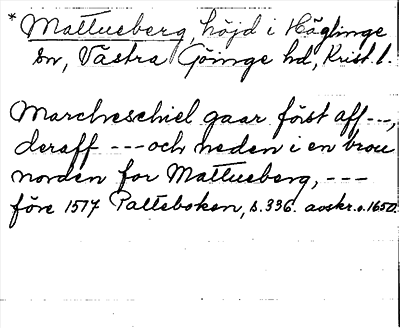 * Mattueberg, höjd i Häglinge
sn, Västra Göinge hd, Krist. l.
Marcheschiel gaar först aff ---,
deraff --- och neden i en brou
norden for Mattueberg, ---
före 1517 Palteboken, s. 336. avskr. o. 1650.